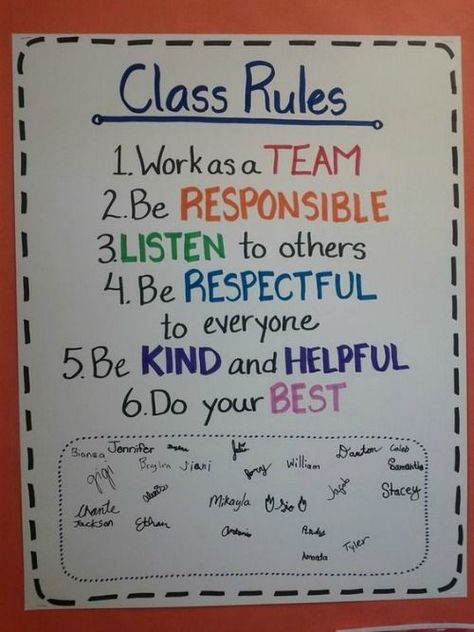 Class Rules
1. Work as a TEAM
2. Be RESPONSIBLE
3. LISTEN to others
4. Be RESPECTFUL
to everyone
5. Be KIND and HELPFUL
6. Do your BEST
Jennifer Daxton Caleb
gigi Viani William Samantha
Jacob Stacey
Mikayla
Jackson Ethan
Antonio
Amanda Tyler